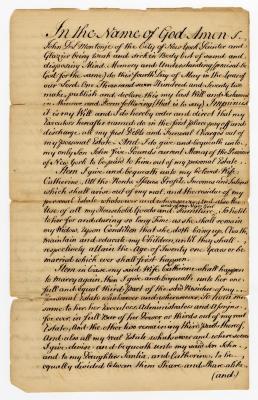 In the Name of God Amen I.
John DeMontonje of the City of New York Painter and
Glazier being weak and sick in Body but of sound and
disposing Mind, Memory and Understanding (praised be
God for the same) do this fourth Day of May in the Year of
our Lord One Thousand seven Hundred and Seventy two
make, publish and declare this my last Will and Testament
in Manner and Form following (that is to say) Imprimis
it is my Will and I do hereby order and direct that my
Executors hereafter named do in the first place pay off and
discharge all my just Debts and Funeral Charges out of
my personal Estate. And I do give and bequeath unto
my only Son John Five Pounds current Money of the Province
of New York to be paid to him out of my personal Estate.
Item I give and bequeath unto my beloved Wife
Catherine, All the Rents Issues Profits Income and Interest
which shall arise out of my real, and the residue of my
personal Estate whatsoever and wheresoever And also the
Use of all my Household Goods and Furniture, To hold
to her for and during so long Time as she shall remain
my Widow, Upon Condition that She doth bring up, Cloath,
maintain and educate my Children, until they shall
respectively attain the Age of Twenty one Years or be
married which ever shall first happen.
Item in case my said Wife Catherine shall happen
to marry again, then I give and bequeath unto her one
full and equal third Part of the said Residue of my
personal Estate whatsoever and wheresoever, To hold the
same to her her Executors Administrators and Assigns
for ever, in full Barr of her Dower or Thirds out of my real
Estate, And the other two remaining Third Parts thereof,
And also all my real Estate whatsoever and wheresoever
I give devise and bequeath unto my said Son John
and to my Daughters and Catherine, to be
equally divided between them Share and Share alike,
(and)